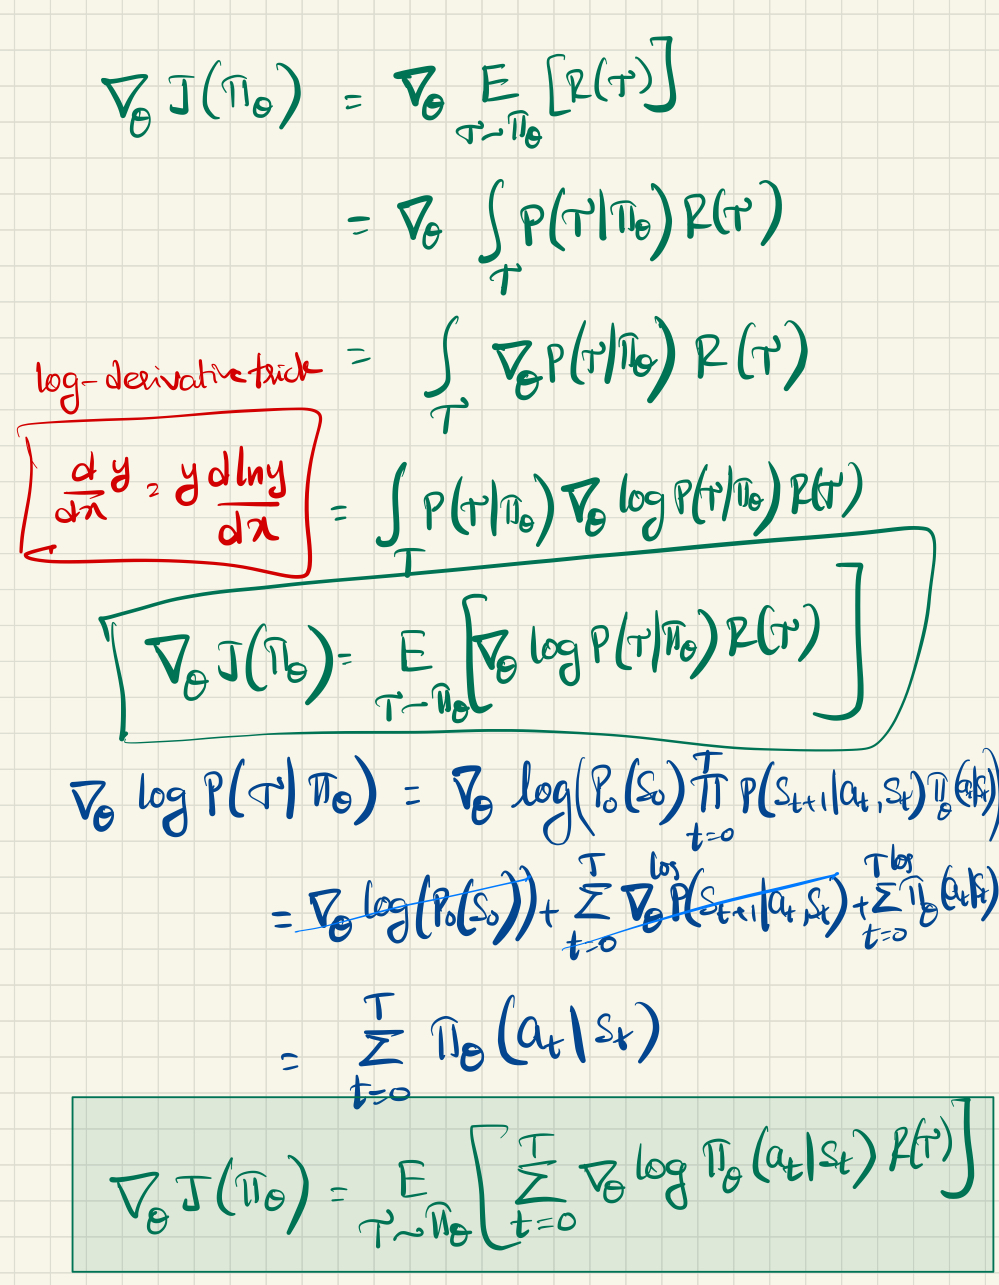 ∇_θ J(π_θ) = ∇_θ E_{τ∼π_θ} [R(τ)]
= ∇_θ ∫_τ P(τ|π_θ) R(τ)
= ∫_τ ∇_θ P(τ|π_θ) R(τ)
log-derivative trick
d/dx y = y d lny/dx
= ∫_τ P(τ|π_θ) ∇_θ log P(τ|π_θ) R(τ)
∇_θ J(π_θ) = E_{τ∼π_θ} [∇_θ log P(τ|π_θ) R(τ)]
∇_θ log P(τ|π_θ) = ∇_θ log(P_0(S_0) ∏_{t=0}^{T} P(S_{t+1}|a_t, S_t) π_θ(a_t|s_t)
= ∇_θ log(P_0(S_0)) + ∑_{t=0}^{T} ∇_θ log P(S_{t+1}|a_t, S_t) + ∑_{t=0}^{T} log π_θ(a_t|s_t)
= ∑_{t=0}^{T} π_θ (a_t|s_t)
∇_θ J(π_θ) = E_{τ∼π_θ} [∑_{t=0}^{T} ∇_θ log π_θ (a_t|s_t) R(τ)]